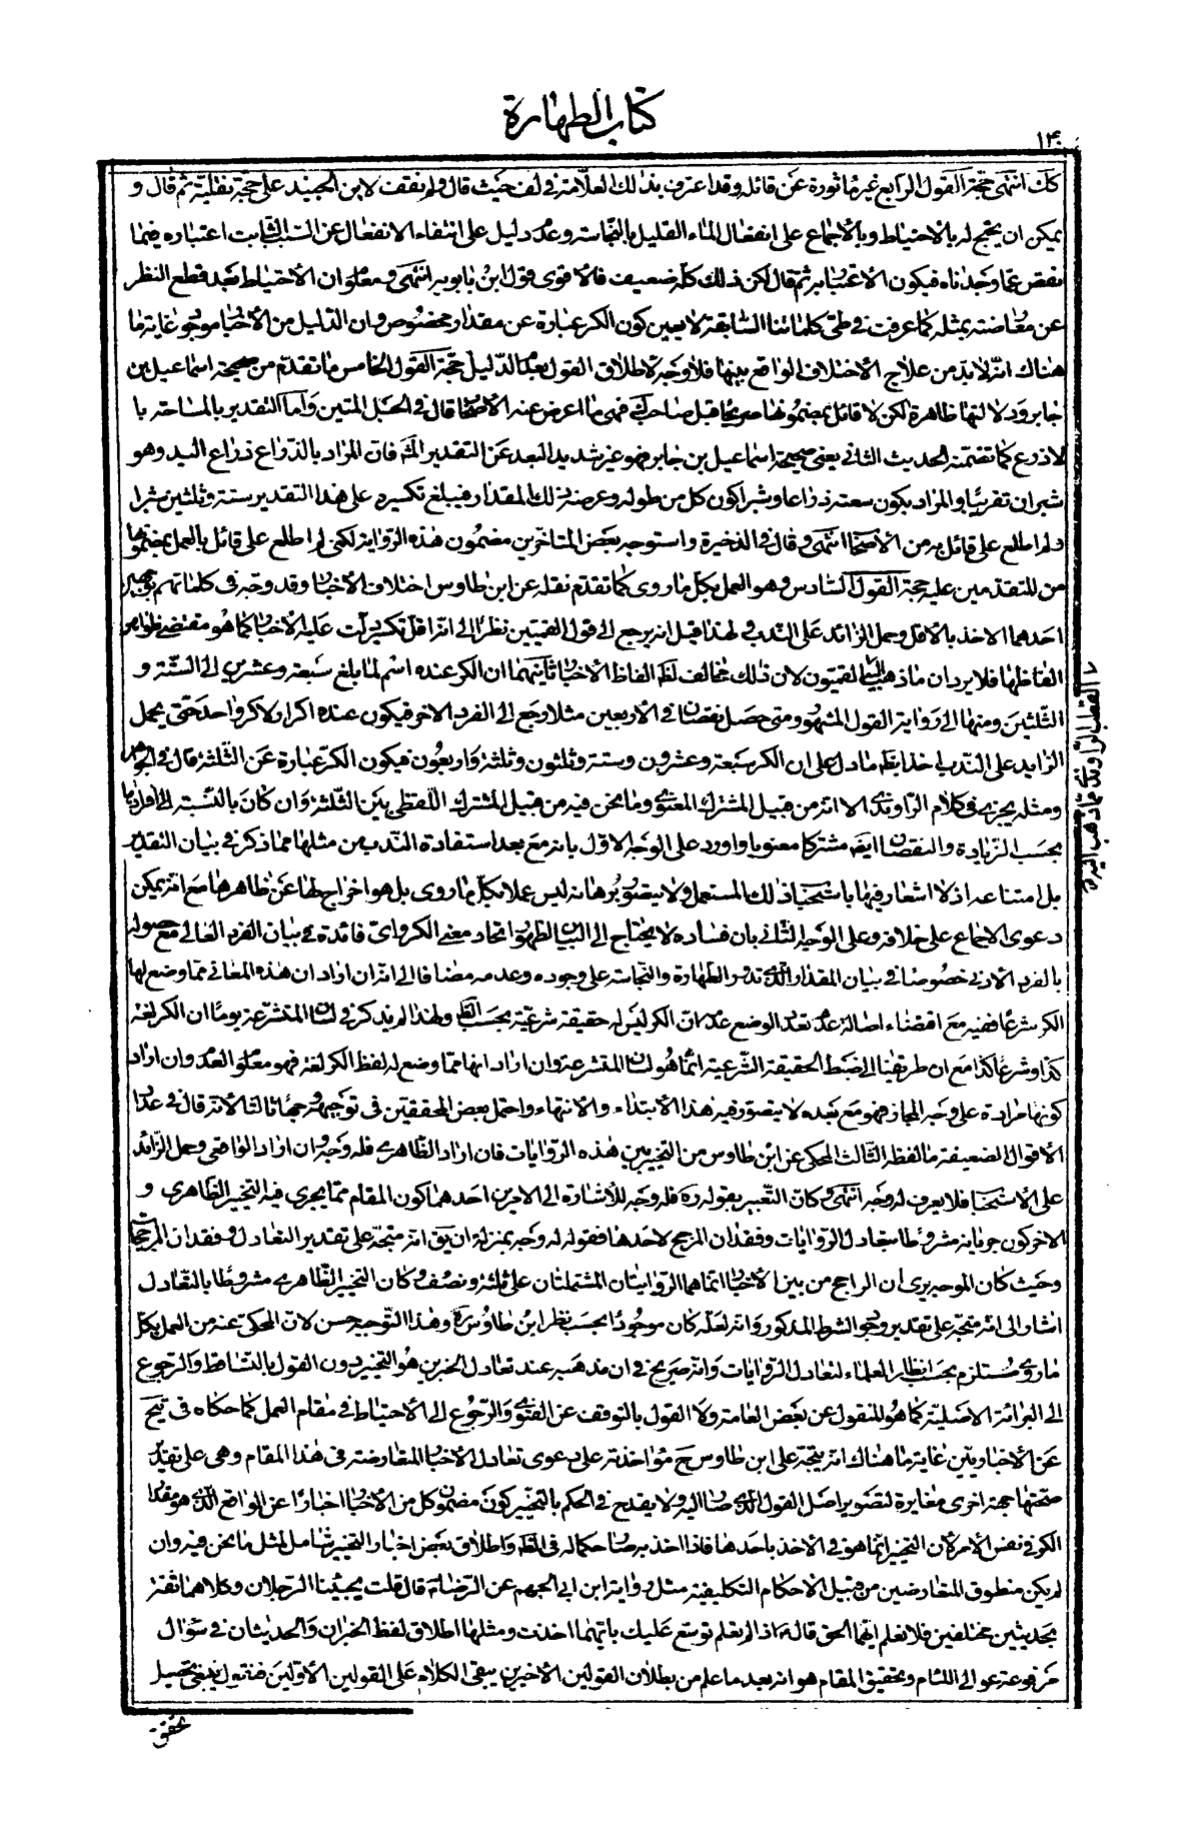 كتاب الطهارة
١٣٠
كك انتهى حجة القول الرابع غير مأثورة عن قائله وقد اعترف بذلك العلامة ره في لف حيث قال ولم نقف لابن الجنيد على حجة نقلية ثم قال و
يمكن ان يحتج له بالاحتياط وبالاجماع على انفعال الماء القليل بالنجاسة وعدم دليل على انتفاء الانفعال عن السبب الثابت اعتباره فيما
نقص عما وجدناه فيكون الاعتبار به ثم قال لكن ذلك كله ضعيف فالاقوى قول ابن بابويه انتهى ومعلوم ان الاحتياط بعد قطع النظر
عن معارضته بمثله كما عرفت في طي كلماتنا السابقة لا يعين كون الكر عبارة عن مقدار مخصوص وان الدليل من الاخبار موجود غاية ما
هناك انه لا بد من علاج الاختلاف الواقع بينها فلا وجه لاطلاق القول بعدم الدليل حجة القول الخامس ما تقدم من صحيحة اسماعيل بن
جابر ودلالتها ظاهرة لكن لا قائل بمضمونها صريحا قبل صاحب ك فهي مما اعرض عنه الاصحاب قال في الحبل المتين واما التقدير بالمساحة با
لاذرع كما تضمنه الحديث الثاني يعني صحيحة اسماعيل بن جابر فهو غير شديد البعد عن التقدير المشهور فان المراد بالذراع ذراع اليد وهو
شبران تقريبا والمراد بكون سعته ذراعا وشبرا كون كل من طوله وعرضه ذلك المقدار فيبلغ تكسيره على هذا التقدير ستة وثلثين شبرا
ولم اطلع على قائل به من الاصحاب انتهى وقال في الذخيرة واستوجه بعض المتاخرين مضمون هذه الرواية لكن لم اطلع على قائل بالعمل بمضمونها
من المتقدمين عليه حجة القول السادس وهو العمل بكل ما روى كما تقدم نقله عن ابن طاوس اختلاف الاخبار وقد وجه في كلماتهم بوجهين
احدهما الاخذ بالاقل وحمل الزائد على الندب ولهذا قيل انه يرجع الى قول القميين نظرا الى انه اقل تكسير دلت عليه الاخبار كما هو مقتضى ظواهر
الفاظها فلا يرد ان ما ذهب اليه القميون لان ذلك مخالف لظاهر الفاظ الاخبار ثانيهما ان الكر عنده اسم لما بلغ سبعة وعشرين الى الستة و
الثلثين ومنها الى رواية القول المشهور ومتى حصل نقصان في الاربعين مثلا رجع الى الفرد الاخر فيكون عنده اكرار لا كر واحد حتى يحمل
الزايد على الندب اخذا بظاهر ما دل على ان الكر سبعة وعشرون وستة وثلثون وثلثة واربعون فيكون الكر عبارة عن الثلثة قال في الجواهر
ومثله يجري في كلام الراوندي الا انه من قبيل المشترك المعنوي وما نحن فيه من قبيل المشترك اللفظي بين الثلثة وان كان بالنسبة الى افرادها
بحسب الزيادة والنقصان ايضا مشتركا معنويا واورد على الوجه الاول بانه مع بعد استفادة الندب من مثلها مما ذكر في بيان التقدير
بل امتناعه اذ لا اشعار فيها باستحباب ذلك المستعمل ولا يقتضيه برهانه ليس عملا بكل ما روى بل هو اخراج لها عن ظاهرها مع انه يمكن
دعوى الاجماع على خلافه وعلى الوجه الثاني بان فساده لا يحتاج الى البيان لظهور اتحاد معنى الكر واي فائدة في بيان الفرد العالي مع حصوله
بالفرد الادنى خصوصا في بيان المقدار الذي تدور الطهارة والنجاسة على وجوده وعدمه مضافا الى انه ان اراد ان هذه المعاني مما وضع لها
الكر شرعا ففيه مع اقتضاء اصالة عدم تعدد الوضع عدمه ان الكر ليس له حقيقة شرعية بحسب الظاهر ولهذا لم يذكر في لسان المتشرعة يوما ان الكر لغة
كذا وشرعا كذا مع ان طريقنا الى ضبط الحقيقة الشرعية انما هو لسان المتشرعة وان اراد انها مما وضع له لفظ الكر لغة فهو معلوم العدم وان اراد
كونها مرادة على وجه المجاز فهو مع بعده لا يتصور فيه هذا الابتداء والانتهاء واحتمل بعض المحققين في توجيهه وجها ثالثا لانه قال في عداد
الاقوال الضعيفة ما لفظه الثالث المحكي عن ابن طاوس من التخيير بين هذه الروايات فان اراد الظاهري فله وجه وان اراد الواقعي وحمل الزائد
على الاستحباب فلا يعرف له وجه انتهى وكان التعبير بقوله ره فله وجه للاشارة الى الامرين احدهما كون المقام مما يجري فيه التخيير الظاهري و
الاخر كون جريانه مشروطا بتعادل الروايات وفقدان المرجح لاحدها فقوله له وجه بمنزلة ان يق انه متجه على تقدير التعادل وفقدان المرجح
وحيث كان الموجه يرى ان الراجح من بين الاخبار انما هما الروايتان المشتملتان على ثلثة ونصف وكان التخيير الظاهري مشروطا بالتعادل
اشار الى انه متجه على تقدير وجود الشرط المذكور وانه لعله كان موجودا بحسب نظر ابن طاوس ره وهذا التوجيه حسن لان المحكي عنه من العمل بكل
ما روى مستلزم بحسب انظار العلماء لتعادل الروايات وانه صريح في ان مذهبه عند تعادل الخبرين هو التخيير دون القول بالتساقط والرجوع
الى البرائة الاصلية كما هو المنقول عن بعض العامة ولا القول بالتوقف عن الفتوى والرجوع الى الاحتياط في مقام العمل كما حكاه في تيح
عن الاخباريين غاية ما هناك انه يتجه على ابن طاوس ح مؤاخذة على دعوى تعادل الاخبار المتعارضة في هذا المقام وهي على تقدير
صحتها جهة اخرى مغايرة لتصوير اصل القول الذي صار اليه ولا يقدح في الحكم بالتخيير كون مضمون كل من الاخبار اخبارا عن الواقع الذي هو مقدار
الكر في نفس الامر لان التخيير انما هو في الاخذ باحدها فاذا اخذ به صار حكما له في الظاهر واطلاق بعض اخبار التخيير شامل لمثل ما نحن فيه وان
لم يكن منطوق المتعارضين من قبيل الاحكام التكليفية مثل رواية ابن ابي الجهم عن الرضا ع قال قلت يجيئنا الرجلان وكلاهما ثقة
بحديثين مختلفين فلا نعلم ايهما الحق قال ع اذا لم تعلم فموسع عليك بايهما اخذت ومثلها اطلاق لفظ الخبران والحديثان في سؤال
مرفوعة غوالي اللئالي وتحقيق المقام هو انه بعد ما علم من بطلان القولين الاخيرين يبقى الكلام على القولين الاولين فنقول ينبغي تحصيل
تحقيق
القطب الراوندي ما ذهب اليه